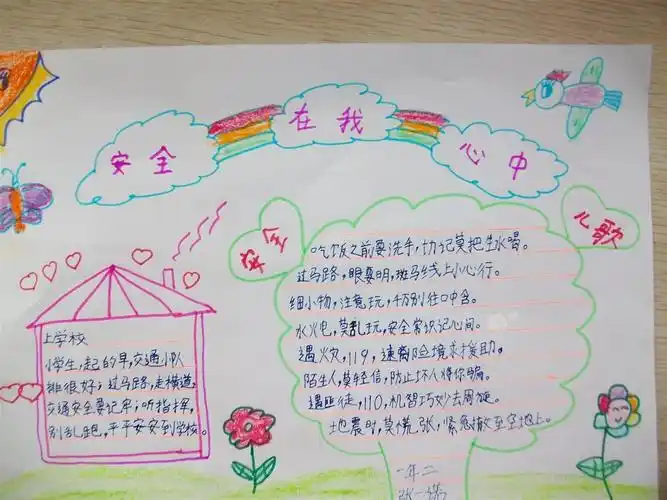 安全 在我 心中
安全 儿歌
上学校
小学生,起的早,交通小队
排很好;过马路,走横道,
交通安全要记牢;听指挥,
别乱跑,平平安安到学校。
吃饭之前要洗手,切记莫把生水喝。
过马路,眼要明,斑马线上小心行。
细小物,注意玩,千万别往口中含。
水火电,莫乱玩,安全常识记心间。
遇火灾,119,速离险境求援助。
陌生人,莫轻信,防止坏人将你骗。
遇匪徒,110,机智巧妙去周旋。
地震时,莫慌张,紧急撤至空地上。
一年二
张一